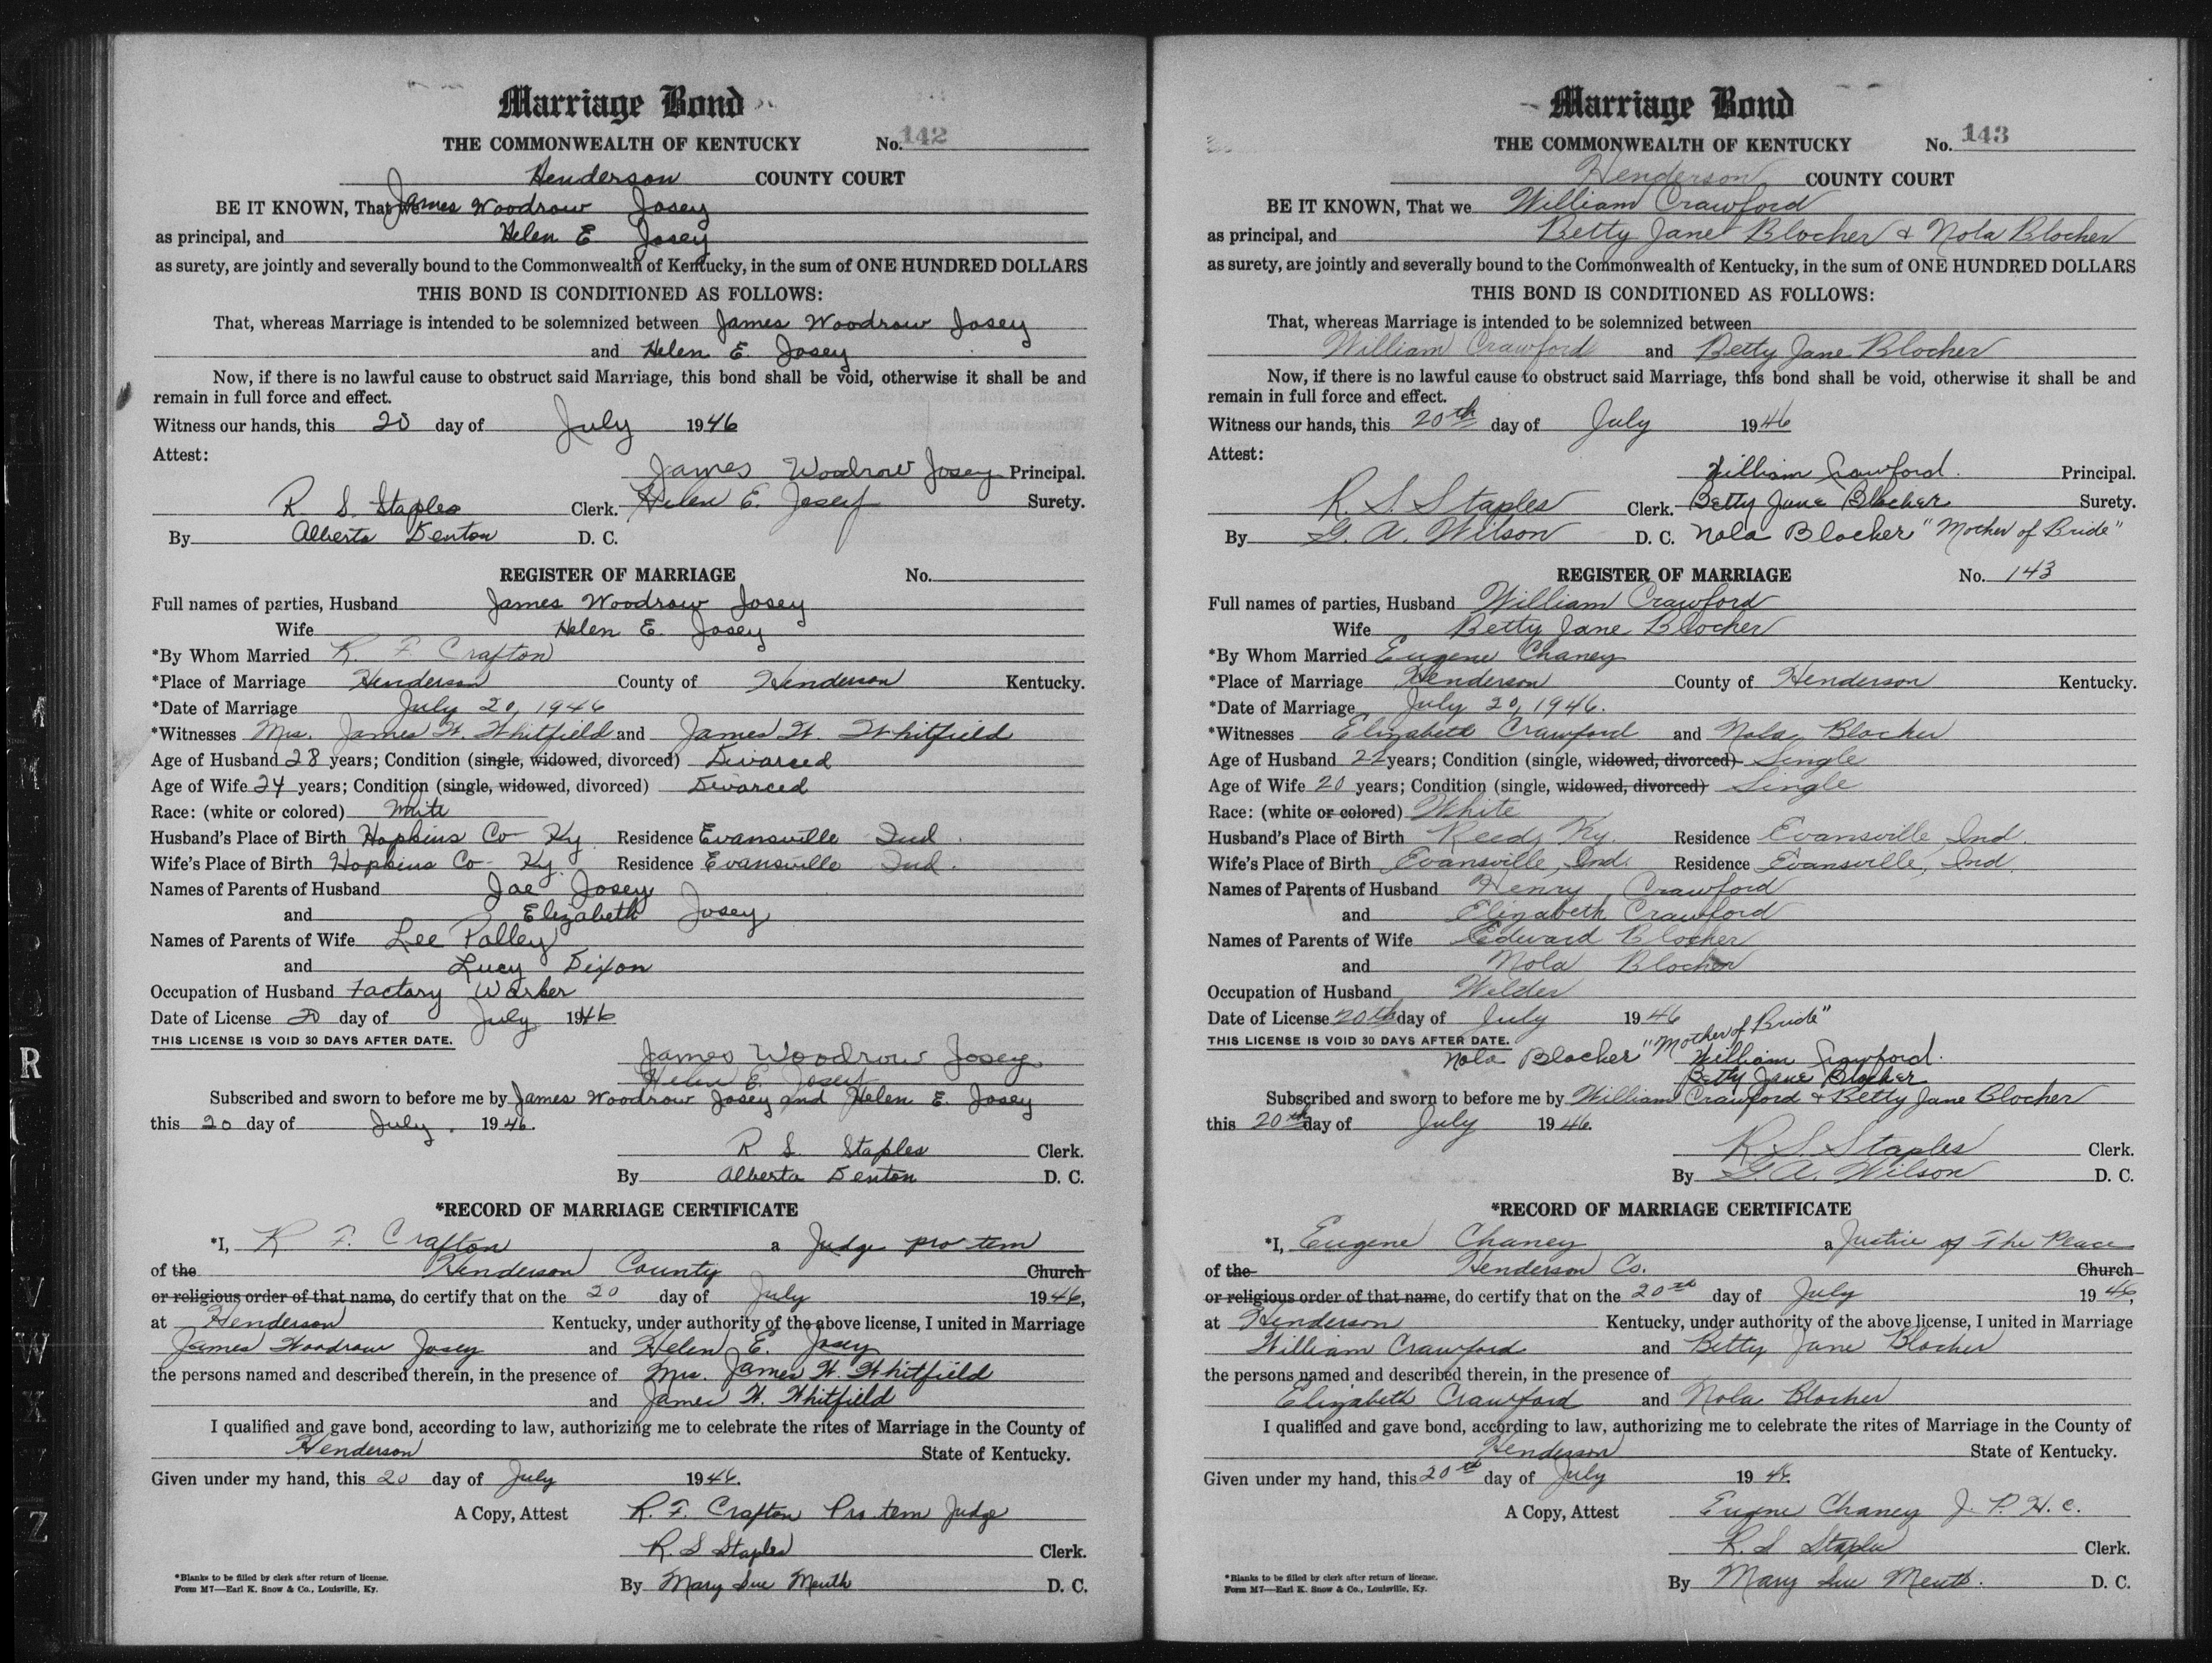 Marriage Bond
THE COMMONWEALTH OF KENTUCKY No. 142
Henderson COUNTY COURT
BE IT KNOWN, That we James Woodrow Josey
as principal, and Helen E Josey
as surety, are jointly and severally bound to the Commonwealth of Kentucky, in the sum of ONE HUNDRED DOLLARS
THIS BOND IS CONDITIONED AS FOLLOWS:
That, whereas Marriage is intended to be solemnized between James Woodrow Josey
and Helen E. Josey
Now, if there is no lawful cause to obstruct said Marriage, this bond shall be void, otherwise it shall be and
remain in full force and effect.
Witness our hands, this 20 day of July 1946
Attest:
James Woodrow Josey Principal.
R S. Staples Clerk. Helen E. Josey Surety.
By Alberta Denton D. C.
REGISTER OF MARRIAGE No.
Full names of parties, Husband James Woodrow Josey
Wife Helen E. Josey
*By Whom Married R F Crafton
*Place of Marriage Henderson County of Henderson Kentucky.
*Date of Marriage July 20, 1946
*Witnesses Mrs. James W. Whitfield and James W. Whitfield
Age of Husband 28 years; Condition (single, widowed, divorced) Divorced
Age of Wife 24 years; Condition (single, widowed, divorced) Divorced
Race: (white or colored) White
Husband's Place of Birth Hopkins Co Ky. Residence Evansville Ind.
Wife's Place of Birth Hopkins Co Ky. Residence Evansville Ind.
Names of Parents of Husband Joe Josey
and Elizabeth Josey
Names of Parents of Wife Lee Polley
and Lucy Dixon
Occupation of Husband Factory Worker
Date of License 20 day of July 1946
THIS LICENSE IS VOID 30 DAYS AFTER DATE.
James Woodrow Josey
Helen E. Josey
Subscribed and sworn to before me by James Woodrow Josey and Helen E. Josey
this 20 day of July. 1946.
R S. Staples Clerk.
By Alberta Denton D. C.
*RECORD OF MARRIAGE CERTIFICATE
*I, R F. Crafton a Judge pro tem
of the Henderson County Church
or religious order of that name, do certify that on the 20 day of July 1946,
at Henderson Kentucky, under authority of the above license, I united in Marriage
James Woodrow Josey and Helen E. Josey
the persons named and described therein, in the presence of Mrs. James W. Whitfield
and James W. Whitfield
I qualified and gave bond, according to law, authorizing me to celebrate the rites of Marriage in the County of
Henderson State of Kentucky.
Given under my hand, this 20 day of July 1946.
A Copy, Attest R. F. Crafton Pro tem Judge
R. S Staples Clerk.
*Blanks to be filled by clerk after return of license.
Form M7—Earl K. Snow & Co., Louisville, Ky.
By Mary Sue Menth D. C.
Marriage Bond
THE COMMONWEALTH OF KENTUCKY No. 143
Henderson COUNTY COURT
BE IT KNOWN, That we William Crawford
as principal, and Betty Jane Blocher & Nola Blocher
as surety, are jointly and severally bound to the Commonwealth of Kentucky, in the sum of ONE HUNDRED DOLLARS
THIS BOND IS CONDITIONED AS FOLLOWS:
That, whereas Marriage is intended to be solemnized between
William Crawford and Betty Jane Blocher
Now, if there is no lawful cause to obstruct said Marriage, this bond shall be void, otherwise it shall be and
remain in full force and effect.
Witness our hands, this 20th day of July 1946
Attest:
William Crawford. Principal.
R. S. Staples Clerk. Betty Jane Blocher Surety.
By G. A. Wilson D. C. Nola Blocher "Mother of Bride"
REGISTER OF MARRIAGE No. 143
Full names of parties, Husband William Crawford
Wife Betty Jane Blocher
*By Whom Married Eugene Chaney
*Place of Marriage Henderson County of Henderson Kentucky.
*Date of Marriage July 20, 1946.
*Witnesses Elizabeth Crawford and Nola Blocher
Age of Husband 22 years; Condition (single, widowed, divorced) Single
Age of Wife 20 years; Condition (single, widowed, divorced) Single
Race: (white or colored) White
Husband's Place of Birth Reed, Ky. Residence Evansville, Ind.
Wife's Place of Birth Evansville, Ind. Residence Evansville, Ind.
Names of Parents of Husband Henry Crawford
and Elizabeth Crawford
Names of Parents of Wife Edward Blocher
and Nola Blocher
Occupation of Husband Welder
Date of License 20th day of July 1946
THIS LICENSE IS VOID 30 DAYS AFTER DATE.
Nola Blocher "Mother of Bride"
William Crawford.
Betty Jane Blocher
Subscribed and sworn to before me by William Crawford & Betty Jane Blocher
this 20th day of July 1946.
R. S. Staples Clerk.
By G. A. Wilson D. C.
*RECORD OF MARRIAGE CERTIFICATE
*I, Eugene Chaney a Justice of The Peace
of the Henderson Co. Church
or religious order of that name, do certify that on the 20th day of July 1946,
at Henderson Kentucky, under authority of the above license, I united in Marriage
William Crawford and Betty Jane Blocher
the persons named and described therein, in the presence of
Elizabeth Crawford and Nola Blocher
I qualified and gave bond, according to law, authorizing me to celebrate the rites of Marriage in the County of
Henderson State of Kentucky.
Given under my hand, this 20th day of July 1946.
A Copy, Attest Eugene Chaney J. P. H. C.
R. S Staples Clerk.
*Blanks to be filled by clerk after return of license.
Form M7—Earl K. Snow & Co., Louisville, Ky.
By Mary Sue Menth. D. C.
R
V
W
X
Z